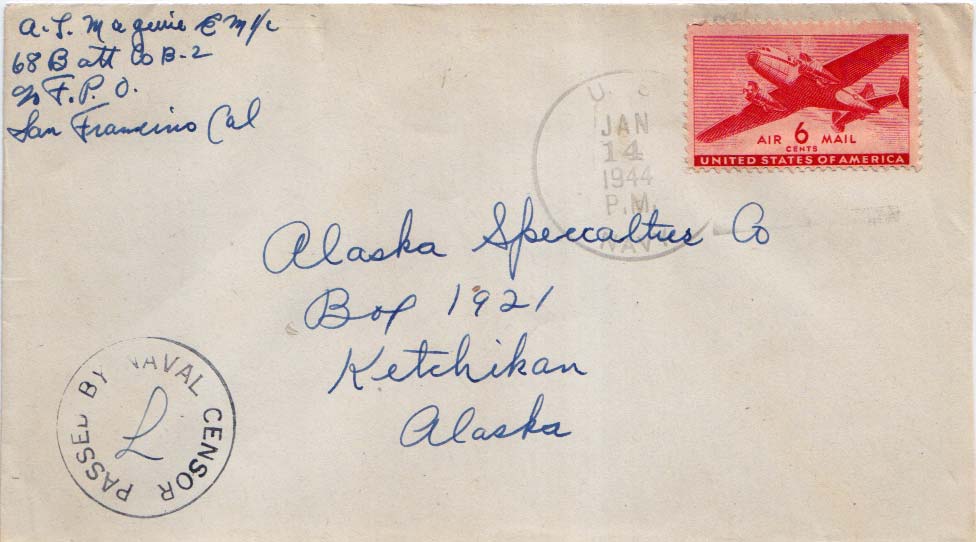 A. J. Maguire EM1/c
68 Batt Co B-2
c/o F.P.O.
San Francisco Cal
U. S.
JAN
14
1944
P.M.
NAVY
AIR 6 MAIL
CENTS
UNITED STATES OF AMERICA
Alaska Specialties Co
Box 1921
Ketchikan
Alaska
PASSED BY NAVAL CENSOR
L